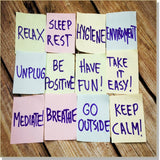 RELAX
SLEEP
REST
HYGIENE
ENVIRONMENT
UNPLUG
BE
POSITIVE
HAVE
FUN!
TAKE
IT
EASY!
MEDITATE
BREATHE
GO
OUTSIDE
KEEP
CALM!